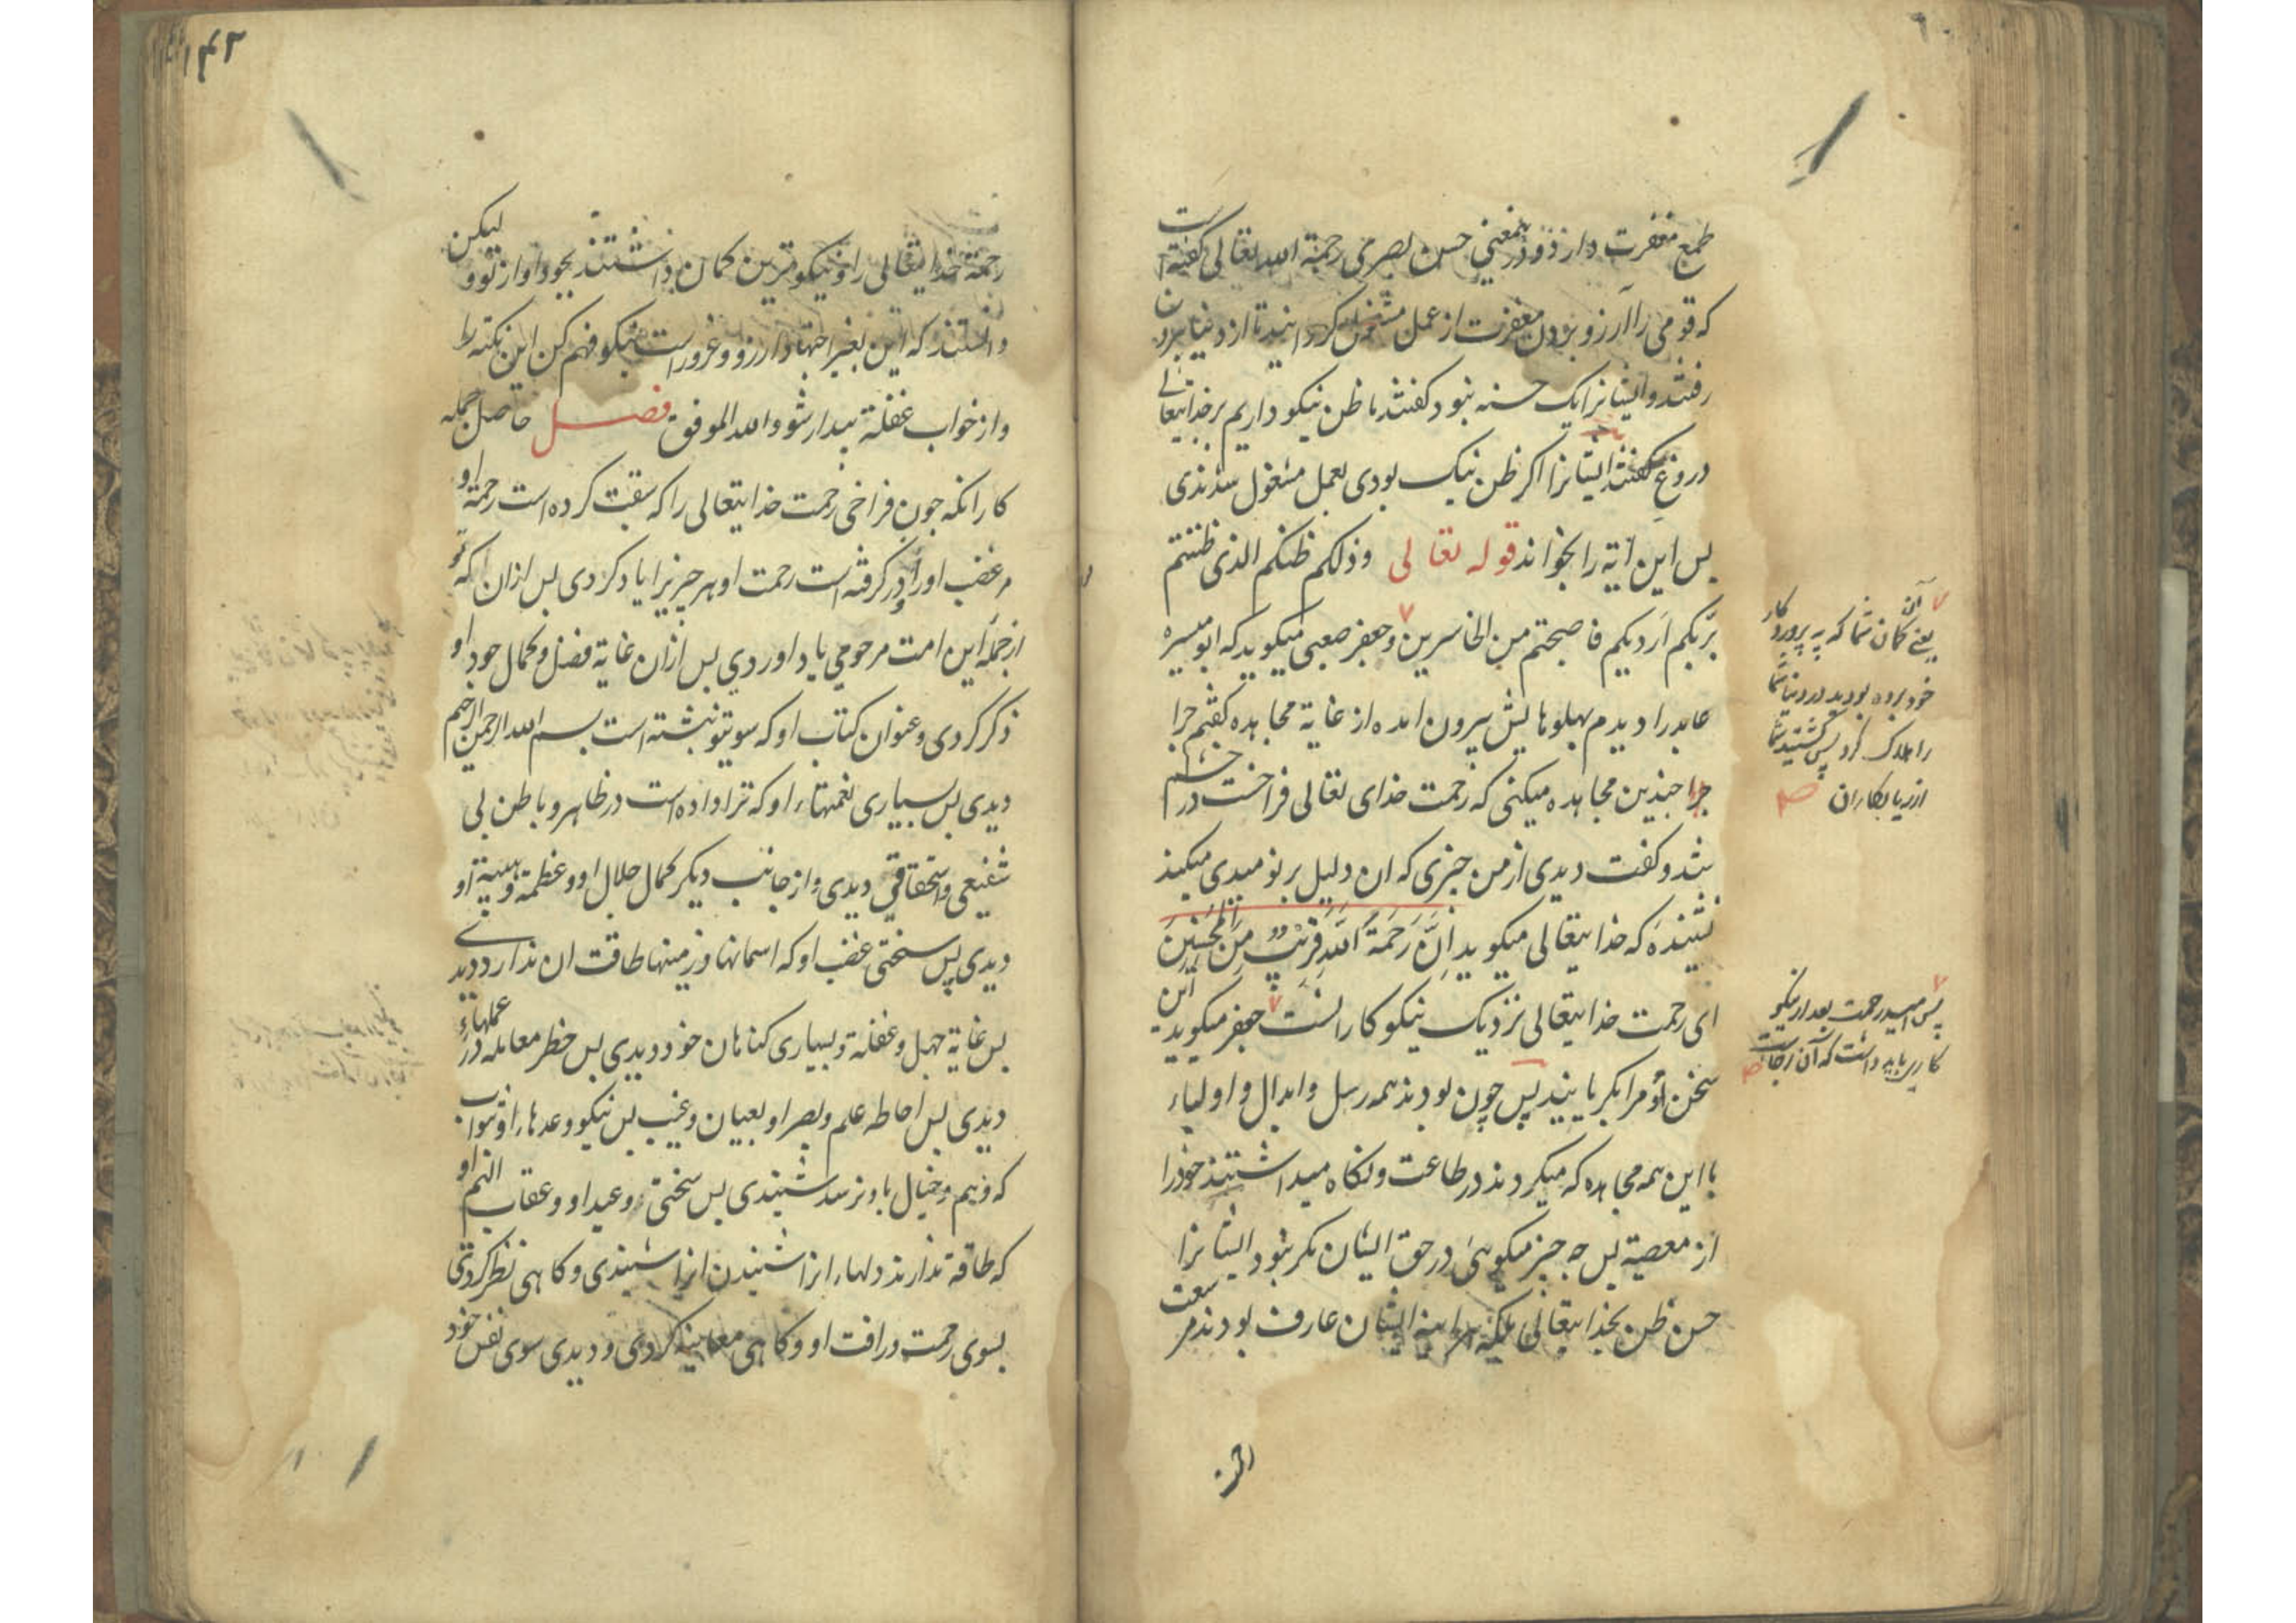 طمع مغفرت دارذ و درینمعنی حسن بصری رحمة الله تعالی کفته است
که قومی را آرزو بردن مغفرت از عمل کردانید تا از دنیا بیرون
رفتند و ایشانرا یک حسنه نبود کفتند ما ظن نیکو داریم بر خدایتعالی
دروغ کفتند ایشانرا اکر ظن نیک بودی بعمل مشغول شدندی
پس این آیة را بخواند قوله تعالی وذلکم ظنکم الذی ظننتم
بربکم اردیکم فاصبحتم من الخاسرین وجعفر صعبی میکوید که ابو میسره
عابد را دیدم پهلوهایش بیرون امده از غایة مجاهده کفتم چرا
چرا چندین مجاهده میکنی که رحمت خدای تعالی فراخست در خشم
شد و کفت دیدی از من چیزی که ان دلیل بر نومیدی میکند
نشنیدهٔ که خدایتعالی میکوید اِنَّ رَحمَةَ اللهِ قَرِیبٌ مِنَ المُحسِنِینَ
ای رحمت خدایتعالی نزدیک نیکوکارانست جعفر میکوید این
سخن او مرا بکریانید پس چون بودند همه رسل و ابدال و اولیاء
با این همه مجاهده که میکردند در طاعت و نکاه میداشتند خودرا
از معصیة پس چه چیز میکوئی در حق ایشان مکر نبود ایشانرا
حسن ظن بخدایتعالی بلکه هراینه ایشان عارف بودند مر سعت
رحمة
یعنی کمان شما آن که به پروردکار
خود برده بودید در دنیا شما
را هلاک کرد پس کشتید شما
از زیانکاران
پس امید رحمت بعد از نیکو
کاری باید داشت که آن رجاست
۱۴۲
رحمة خدایتعالی را و نیکوترین کمان داشتند بجود او از تو و لیکن
دانستند که این بغیر اجتهاد ارزو و غرور است نیکو فهم کن این نکته را
و از خواب غفلة بیدار شو و الله الموفق فصل حاصل جمله
کار انکه چون فراخی رحمت خدایتعالی را که سبقت کرده است رحمة او
مر غضب اورا و در کرفته است رحمت او هر چیزیرا یاد کردی پس ازان که تو
از جملهٔ این امت مرحومی یاد اوردی پس ازان غایة فضل و کمال جود او
ذکر کردی و عنوان کتاب او که سوی تو نبشته است بسم الله الرحمن الرحیم
دیدی پس بسیاری نعمتهاء او که ترا داده است در ظاهر و باطن بی
شفیعی و استحقاقی دیدی و از جانب دیکر کمال جلال او و عظمة و هیبة او
دیدی پس سختی غضب او که اسمانها و زمینها طاقت ان ندارد دیدی
پس غایة جهل و غفلة و بسیاری کناهان خود دیدی پس خطر معامله در عملهاء
دیدی پس احاطه علم و بصر او بعیان و غیب پس نیکو وعدهاء او و ثواب
که وهم و خیال باو نرسد شنیدی پس سختی وعید او و عقاب الیم او
که طاقة ندارند دلهاء انرا شنیدن انرا شنیدی و کاهی نظر کردی
بسوی رحمت و رافت او و کاهی معاینه کردی و دیدی سوی نفس خود